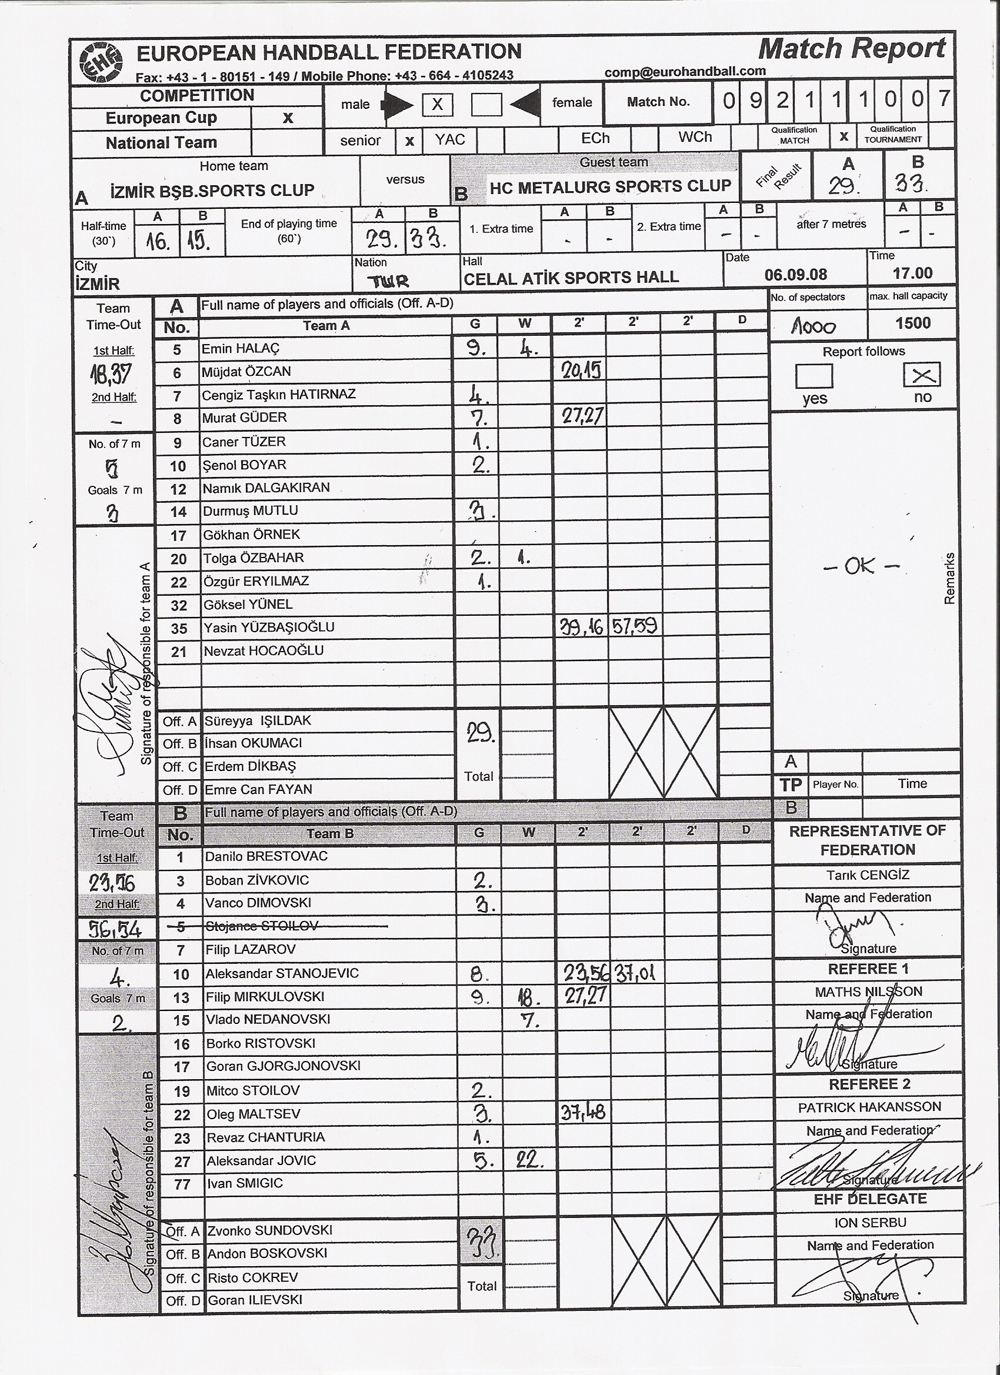 EUROPEAN HANDBALL FEDERATION
Match Report
Fax: +43 - 1 - 80151 - 149 / Mobile Phone: +43 - 664 - 4105243
comp@eurohandball.com
EHF
COMPETITION
male X female
Match No. 0 9 2 1 1 1 1 0 0 7
European Cup x
National Team
senior x YAC ECh WCh Qualification MATCH x Qualification TOURNAMENT
Home team
A İZMİR BŞB.SPORTS CLUP
versus
Guest team
B HC METALURG SPORTS CLUP
Final Result A 29. B 33.
Half-time (30`) A 16. B 15.
End of playing time (60`) A 29. B 33.
1. Extra time A - B -
2. Extra time A - B -
after 7 metres A - B -
City İZMİR
Nation TUR
Hall CELAL ATİK SPORTS HALL
Date 06.09.08
Time 17.00
No. of spectators 1000
max. hall capacity 1500
Report follows
yes X no
Team Time-Out
1st Half:
18,37
2nd Half:
-
No. of 7 m
5
Goals 7 m
3
Signature of responsible for team A
A Full name of players and officials (Off. A-D)
No. Team A G W 2' 2' 2' D
5 Emin HALAÇ 9. 4.
6 Müjdat ÖZCAN 20,15
7 Cengiz Taşkın HATIRNAZ 4.
8 Murat GÜDER 7. 27,27
9 Caner TÜZER 1.
10 Şenol BOYAR 2.
12 Namık DALGAKIRAN
14 Durmuş MUTLU 3.
17 Gökhan ÖRNEK
20 Tolga ÖZBAHAR 2. 1.
22 Özgür ERYILMAZ 1.
32 Göksel YÜNEL
35 Yasin YÜZBAŞIOĞLU 39,16 57,59
21 Nevzat HOCAOĞLU
Off. A Süreyya IŞILDAK
Off. B İhsan OKUMACI
Off. C Erdem DİKBAŞ
Off. D Emre Can FAYAN
29.
Total
- OK -
Remarks
A
TP Player No. Time
B
Team Time-Out
1st Half:
23,56
2nd Half:
56,54
No. of 7 m
4.
Goals 7 m
2.
Signature of responsible for team B
B Full name of players and officials (Off. A-D)
No. Team B G W 2' 2' 2' D
1 Danilo BRESTOVAC
3 Boban ZİVKOVIC 2.
4 Vanco DIMOVSKI 3.
5 Stojance STOILOV
7 Filip LAZAROV
10 Aleksandar STANOJEVIC 8. 23,56 37,01
13 Filip MIRKULOVSKI 9. 18. 27,27
15 Vlado NEDANOVSKI 7.
16 Borko RISTOVSKI
17 Goran GJORGJONOVSKI
19 Mitco STOILOV 2.
22 Oleg MALTSEV 3. 37,48
23 Revaz CHANTURIA 1.
27 Aleksandar JOVIC 5. 22.
77 Ivan SMIGIC
Off. A Zvonko SUNDOVSKI
Off. B Andon BOSKOVSKI
Off. C Risto COKREV
Off. D Goran ILIEVSKI
33.
Total
REPRESENTATIVE OF FEDERATION
Tarık CENGİZ
Name and Federation
Signature
REFEREE 1
MATHS NILSSON
Name and Federation
Signature
REFEREE 2
PATRICK HAKANSSON
Name and Federation
Signature
EHF DELEGATE
ION SERBU
Name and Federation
Signature